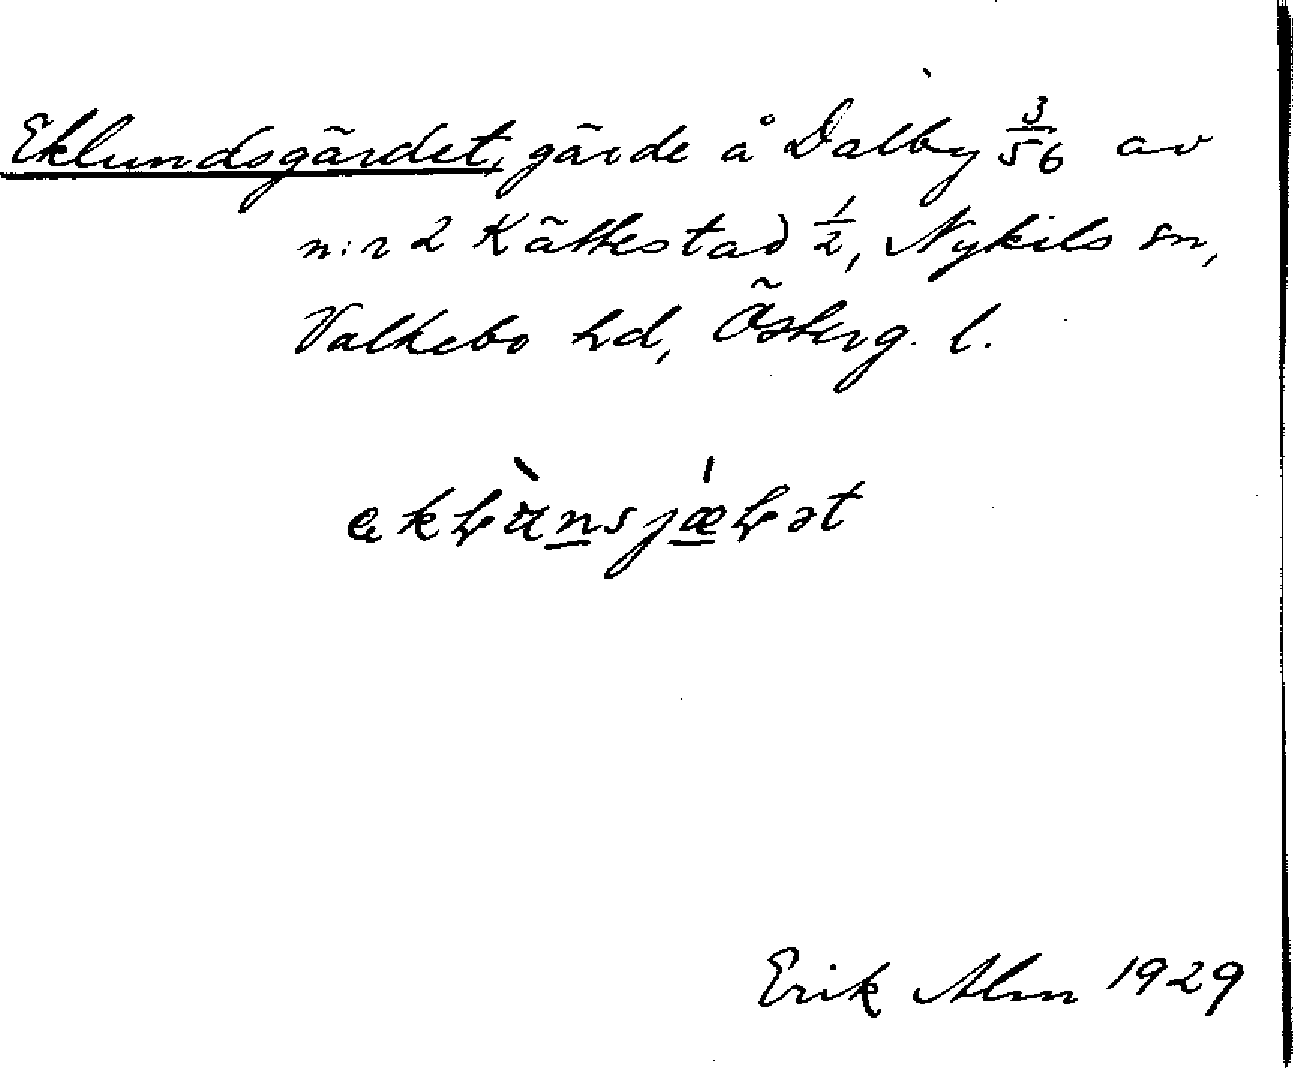 Eklundsgärdet, gärde å Dalby 3/56 av
n:r 2 Kättestad 1/2, Nykils sn,
Valkebo hd, Österg. l.
Erik Alm 1929